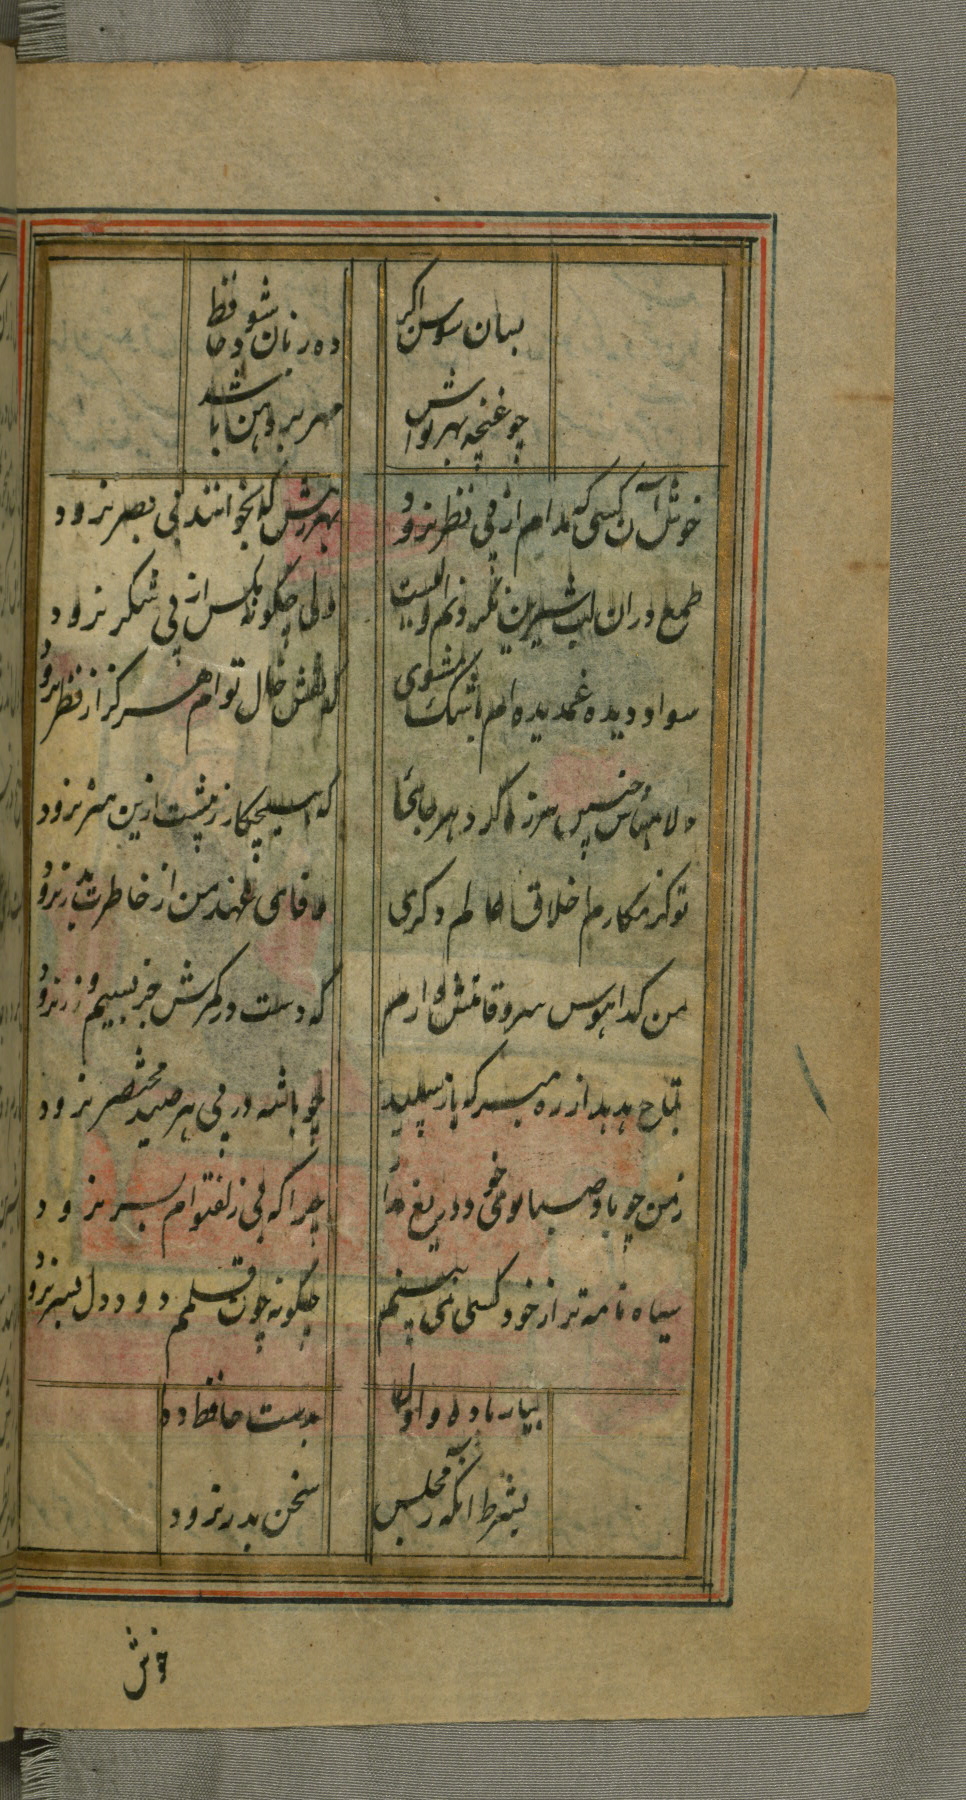 بسان سوسن اگر ده زبان شود حافظ
چو غنچه پیش تواش مهر بر دهن باشد
خوش آن کسی که مدام از پی نظر نرود
بهر درش که بخوانند بی بصر نرود
طمع در آن لب شیرین نکردنم اولیست
ولی چگونه مگس از پی شکر نرود
سواد دیده غمدیده ام باشک مشوی
که نقش خال توام هرگز از نظر نرود
دلا مباش چنین هرزه گرد هر جائی
که هیچکار ز پیشت ازین هنر نرود
تو کز مکارم اخلاق عالم دگری
وفای عهد من از خاطرت بدر نرود
من گدا هوس سرو قامتش دارم
که دست در کمرش جز بسیم و زر نرود
بتاج هدهد از ره مبر که باز سپید
چو باشه در پی هر صید مختصر نرود
ز من چو باد صبا بوی خود دریغ مدار
چرا که بی زلف توام بسر نرود
سیاه نامه تر از خود کسی نمی بینم
چگونه چون قلمم دود دل بسر نرود
بیار باده و اول بدست حافظ ده
بشرط آنکه ز مجلس سخن بدر نرود
خوش